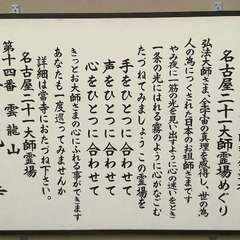 名古屋二十一大師霊場めぐり
弘法大師さま、全宇宙の真理を感得し、世の為
人の為につくされた日本のお祖師さまです
やみ夜に一筋の光を見い出すように心の迷いをとき
一条の光にはれる霧のように心がなごむ
たづねてみましょうこの霊場を
手をひとつに合わせて
声をひとつに合わせて
心をひとつに合わせて
きっとお大師さまの心にふれる事ができます
あなたも一度巡ってみませんか
詳細は当寺におたづね下さい。
名古屋二十一大師霊場
第十四番 雲龍山